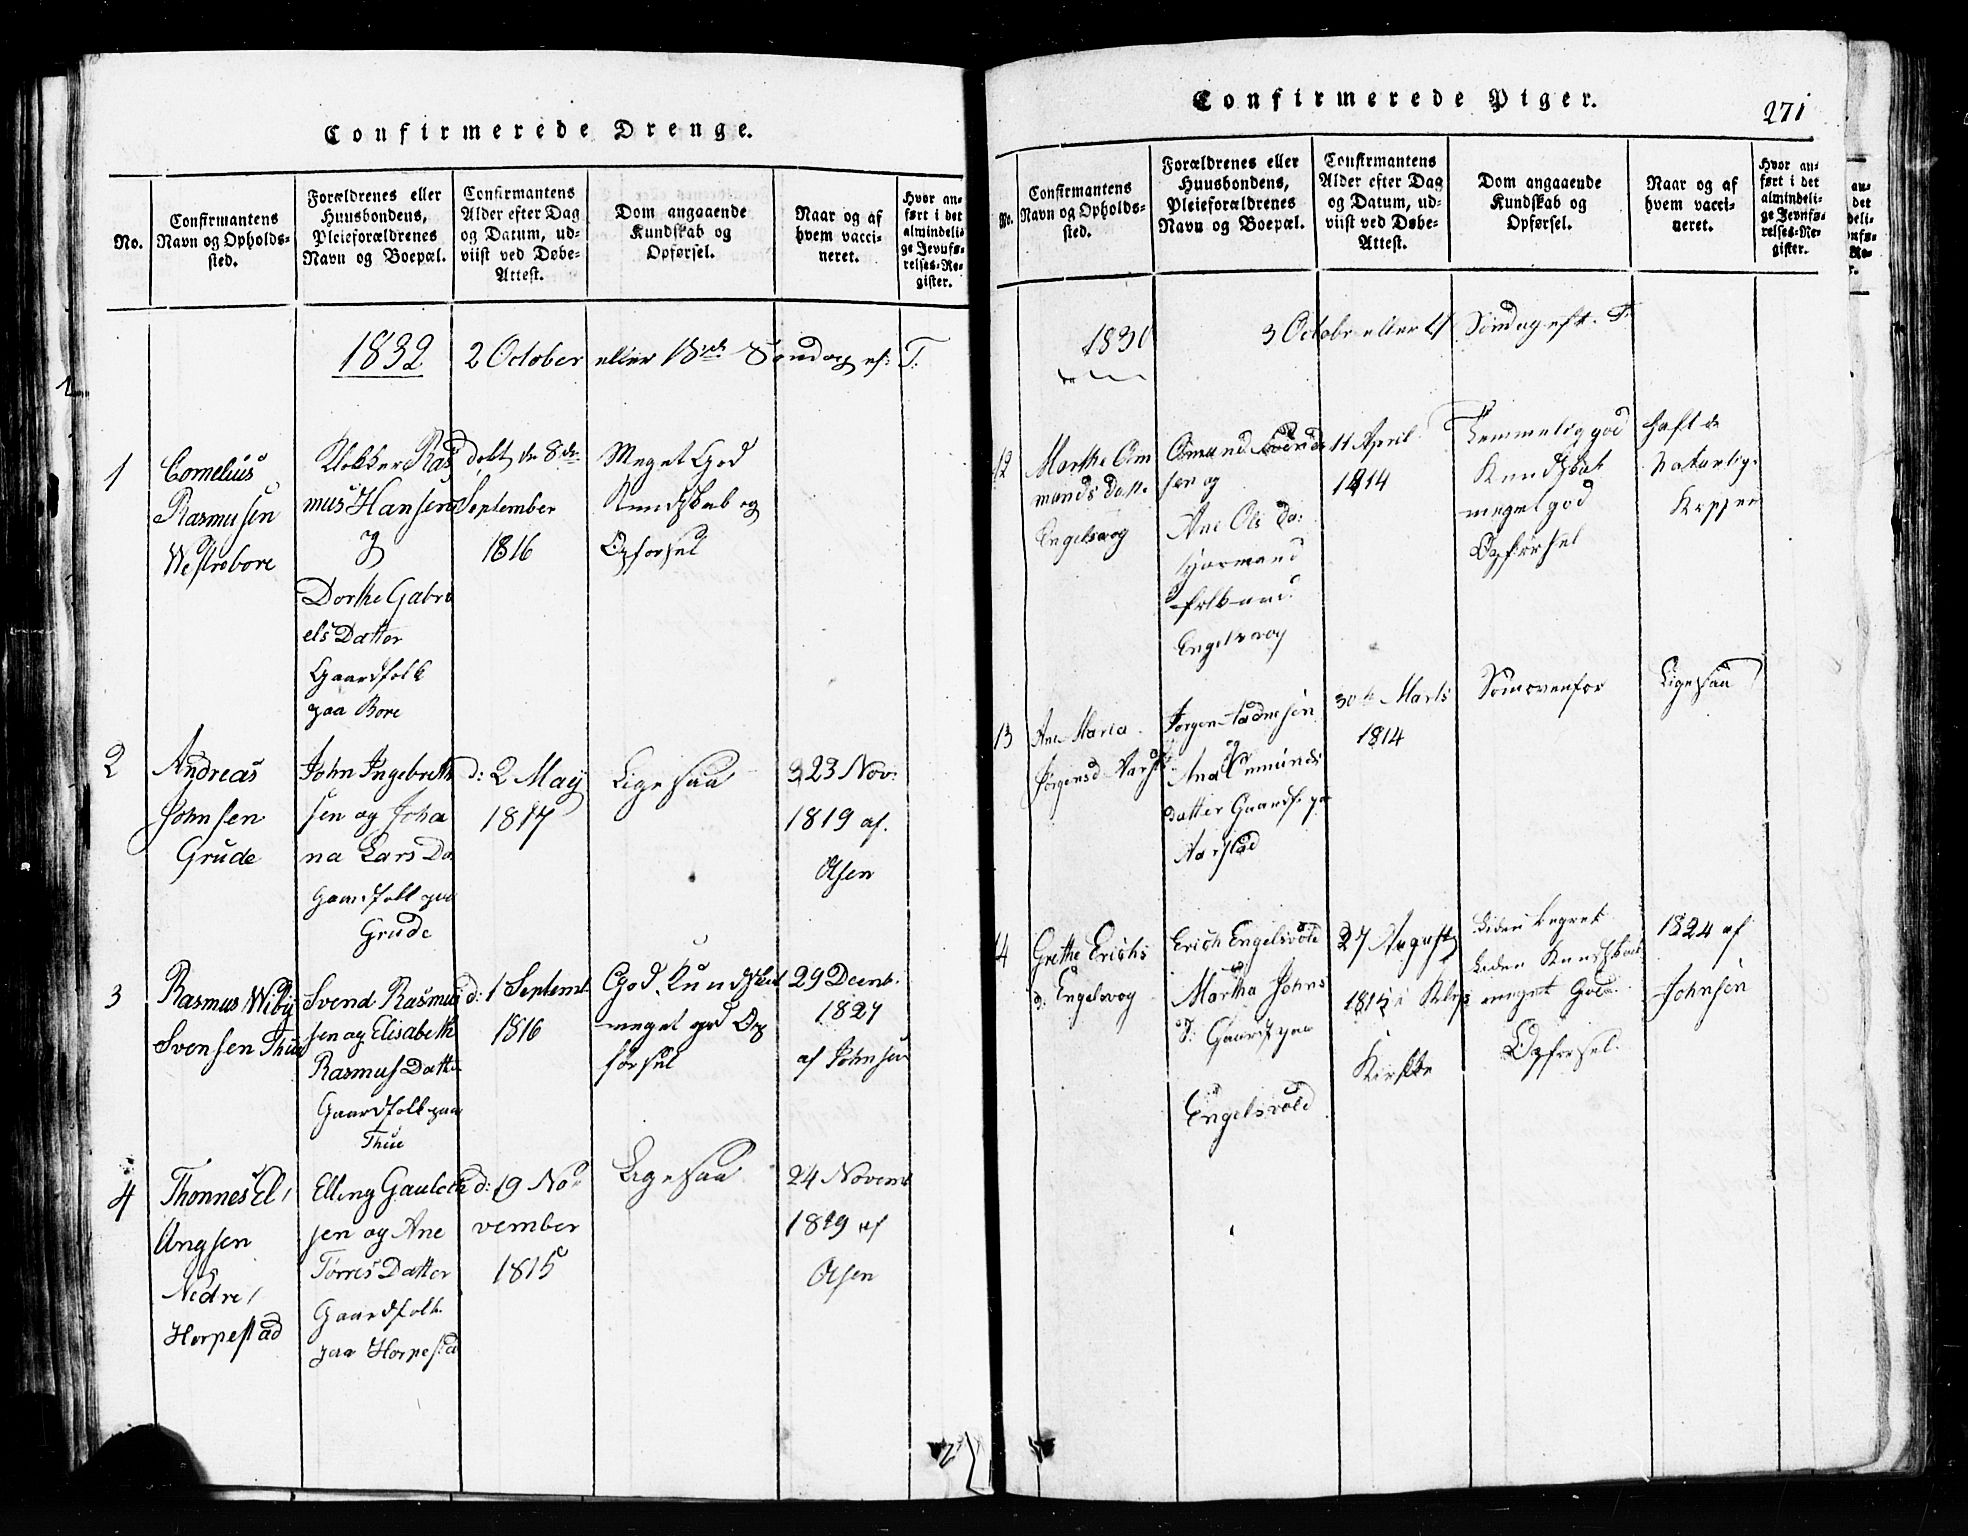 Confirmerede Drenge.
No.
Confirmantens
Navn og Opholds-
sted.
Forældrenes eller
Huusbondens,
Pleieforældrenes
Navn og Boepæl.
Confirmantens
Alder efter Dag
og Datum, ud-
viist ved Døbe-
Attest.
Dom angaaende
Kundskab og
Opførsel.
Naar og af
hvem vacci-
neret.
Hvor an-
ført i det
almindeli-
ge Jevnfø-
relses-Re-
gister.
1832 2 October eller 18de Søndag ef: T.
1
Cornelius
Rasmusen
Westrebore
Klokker Ras
mus Hansen
og
Dorthe Gabri
els Datter
Gaardfolk
paa Bore
døbt de 8de
September
1816
Meget God
Kundskab og
Opførsel
2
Andreas
Johnsen
Grude
John Ingebreth
sen og Joha
na Lars Da
Gaardfolk paa
Grude
d: 2 May
1817
Ligesaa
23 Nov:
1819 af.
Olsen
3
Rasmus Wiby
Svensen Thue
Svend Rasmus
sen og Elisabeth
Rasmus Datter
Gaardfolk paa
Thue
d: 1 Septemb
1816
God Kundskab
meget god Op
førsel
29 Decemb.
1827
af Johnsen
4
Thonnes El
lingsen
Nedre
Horpestad
Elling Gauleck
sen og Ane
Torres Datter
Gaardfolk
paa Horpestad
d: 19 No
vember
1815
Ligesaa
24 Novemb
1819 af
Olsen
Confirmerede Piger.
271
No.
Confirmantens
Navn og Opholds-
sted.
Forældrenes eller
Huusbondens,
Pleieforældrenes
Navn og Boepæl.
Confirmantens
Alder efter Dag
og Datum, ud-
viist ved Døbe-
Attest.
Dom angaaende
Kundskab og
Opførsel.
Naar og af
hvem vacci-
neret.
Hvor an-
ført i det
almindeli-
ge Jevnfø-
relses-Re-
gister.
3 Octobr eller Søndag eft. T.
12
Marthe Om
munds Datt.
Engelsvog
Omund
sen og
Ane Ols Da:
Huusmand
folk
Engelsvog
11 April
1814
Temmelig god
Kundskab
meget god
Opførsel
haft de
Naturlige
Kopper
13
Ane Maria
Jørgensd Aarst
Jørgen Aadnesen
og
Ana Omunds
datter Gaardf. paa
Aarstad
30te Marts
1814
Som ovenfor
Ligesaa
14
Grethe Erichs
d: Engelsvog
Erich Engelsvold
og
Martha Johns
D: Gaardf paa
Engelsvold
27 August
Kleps
Kirke
Liden
Liden Kundskab
meget God
Opførsel.
1824 af
Johnsen